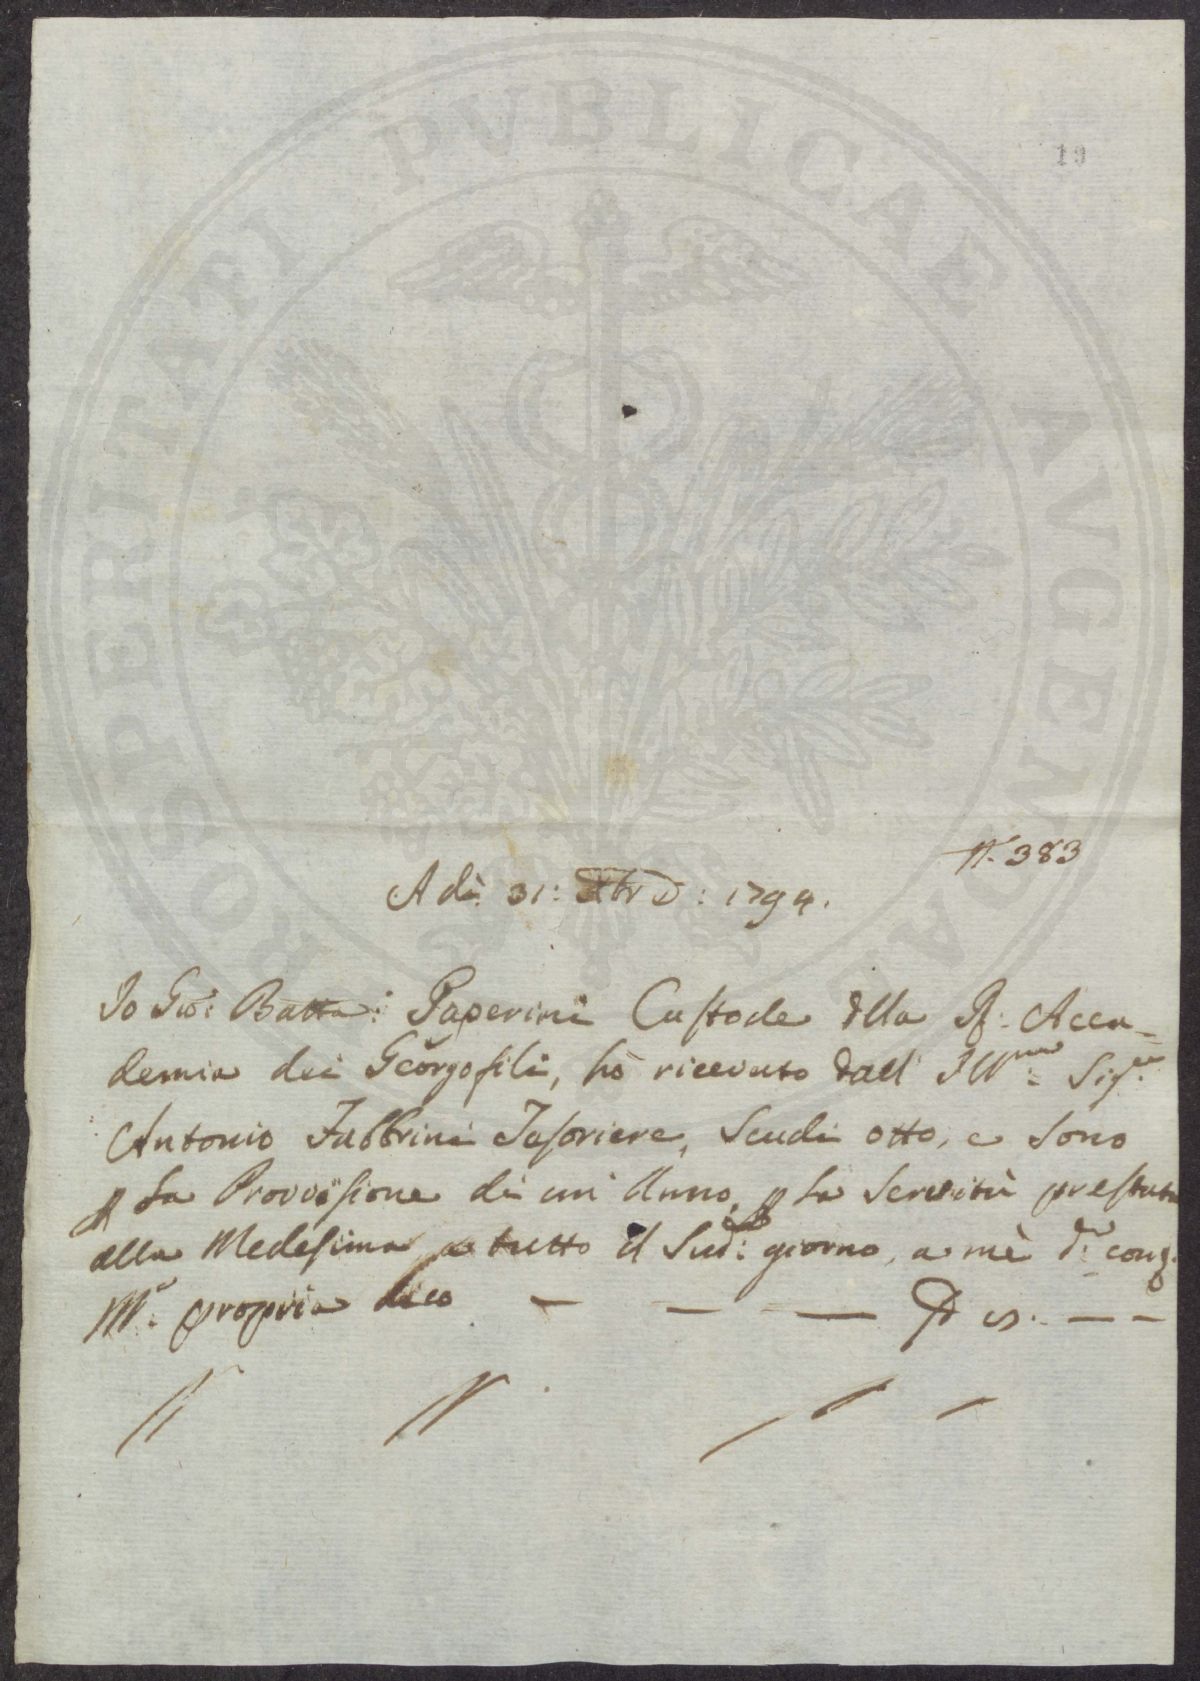 PROSPERITATI PUBLICAE AVGENDAE
19
N. 383
A dì 31: Xbre: 1794.
Io Gio: Batta: Paperini Custode dlla R: Acca=
demia dei Georgofili, hò ricevuto dall' Ill.mo: Sig.re
Antonio Fabbrini Tesoriere, Scudi otto, e sono
p La Provvisione di un' Anno, p La Servitù prestata
alla Medesima a tutto il Sud:o giorno, a mè d:i
M:o propria dico — — — 8. — —